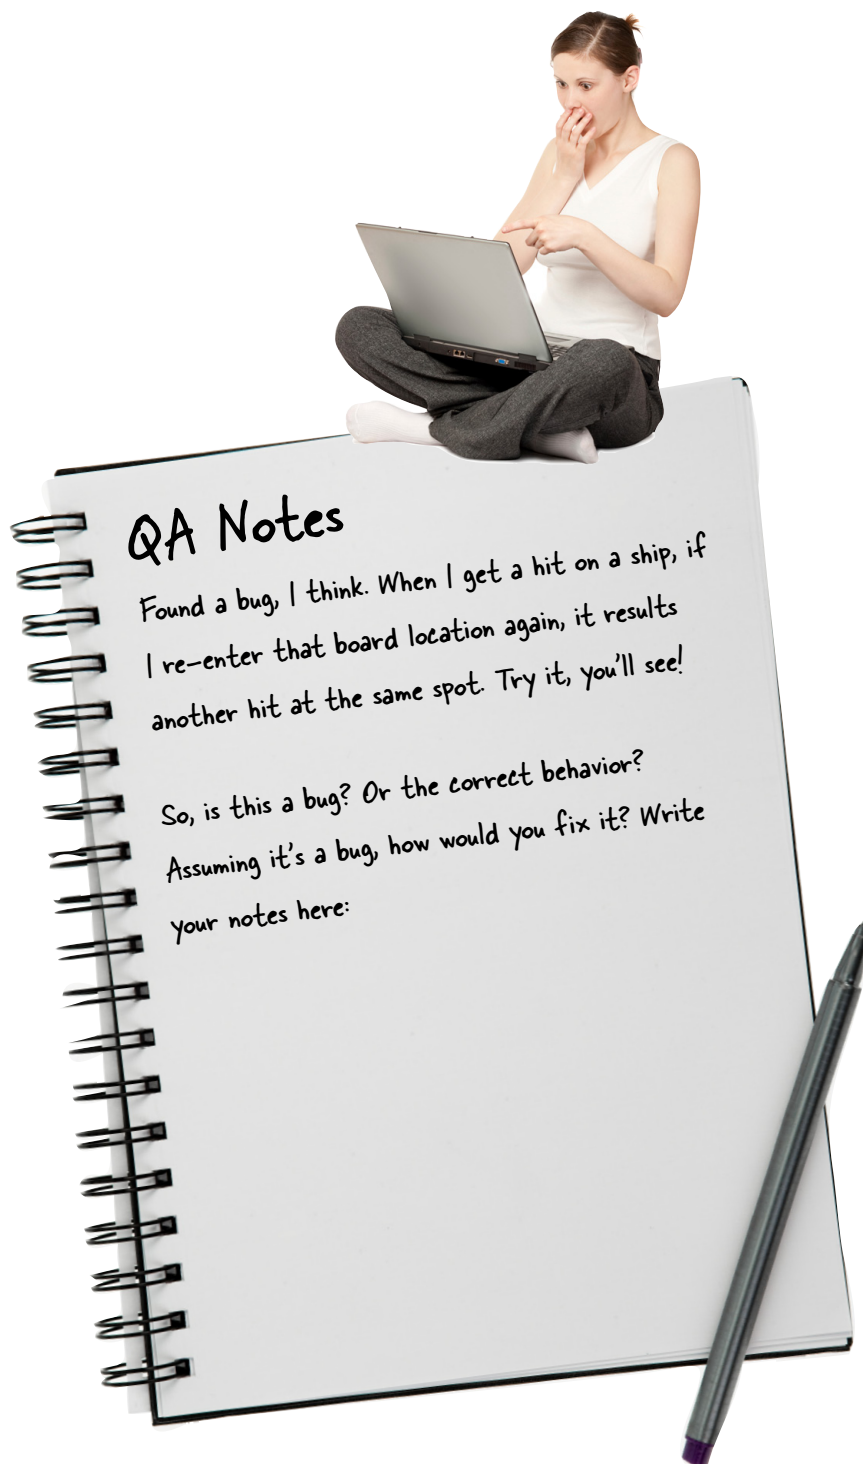 QA Notes
Found a bug, I think. When I get a hit on a ship, if
I re-enter that board location again, it results
another hit at the same spot. Try it, you'll see!
So, is this a bug? Or the correct behavior?
Assuming it's a bug, how would you fix it? Write
your notes here: